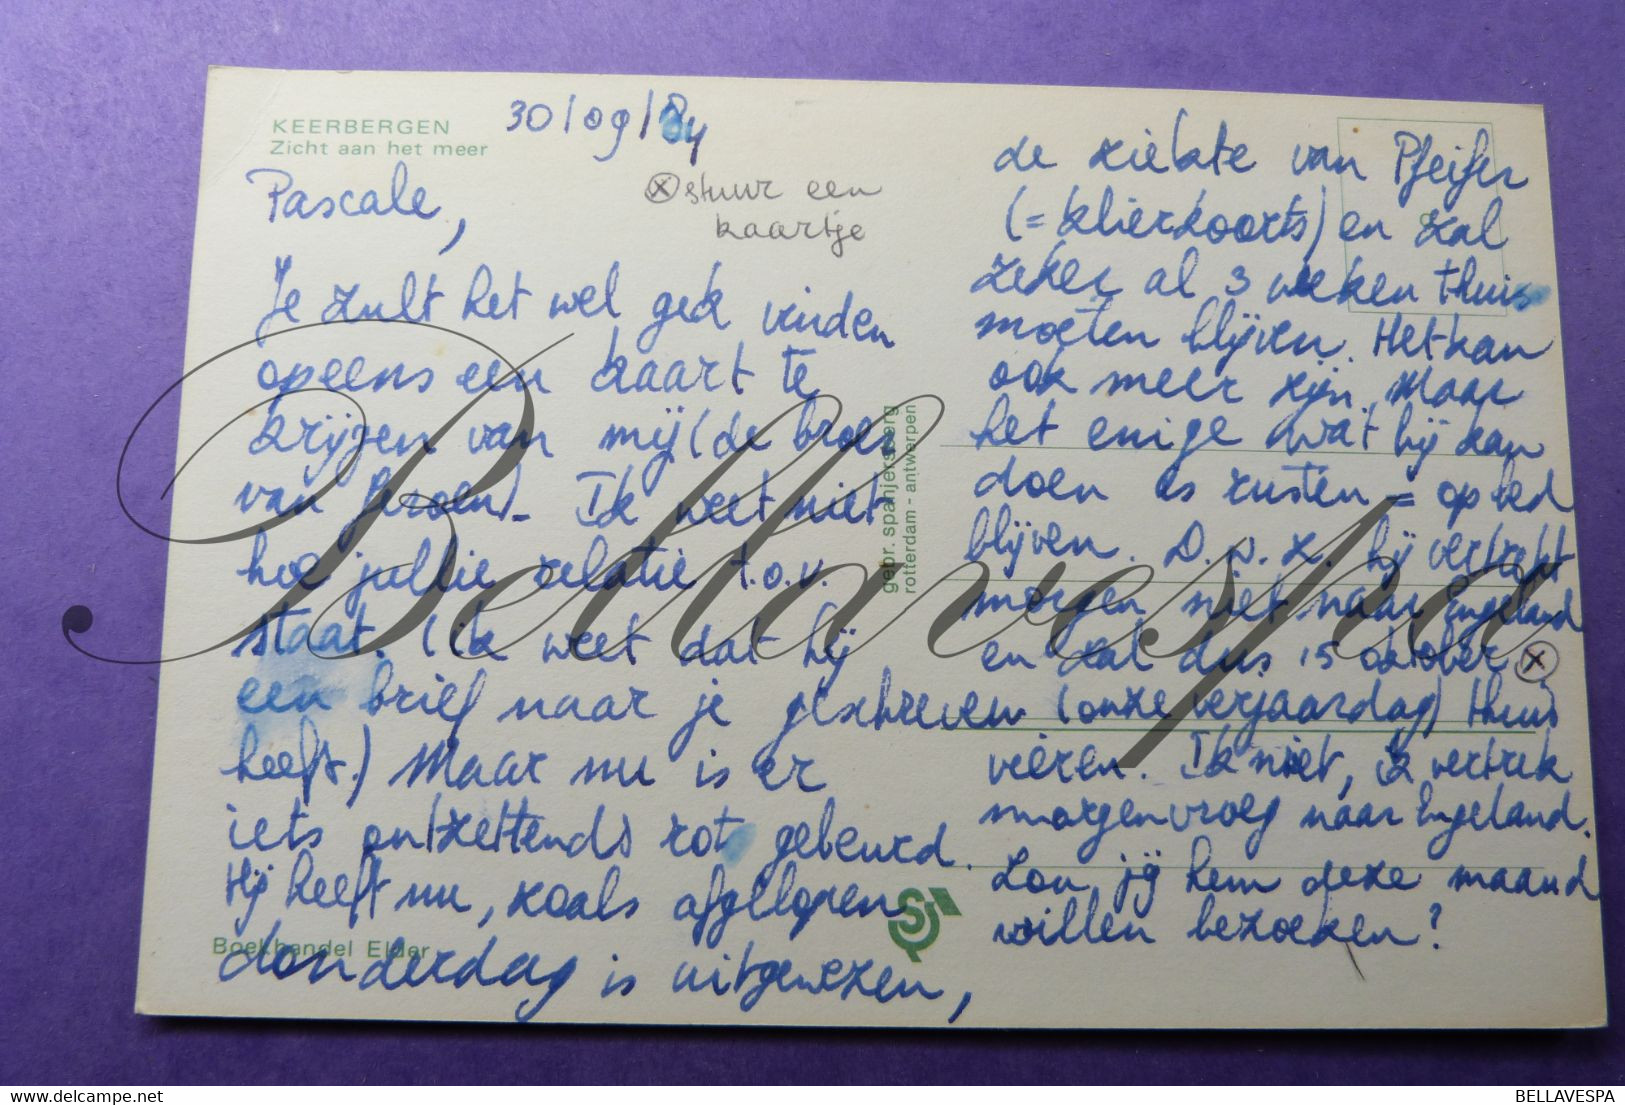 KEERBERGEN
Zicht aan het meer
30/09/84
ⓧ stuur een
kaartje
Pascale,
Je zult het wel gek vinden
opeens een kaart te
krijgen van mij (de broer
van Jeroen). Ik weet niet
hoe jullie relatie t.o.v.
staat. (ik weet dat hij
een brief naar je geschreven
heeft.) Maar nu is er
iets ontzettends rot gebeurd.
Hij heeft nu, zoals afgelopen
donderdag is uitgewezen,
Boekhandel Elder
gebr. spanjersberg
rotterdam - antwerpen
de ziekte van Pfeifer
(= klierkoorts) en zal
zeker al 3 weken thuis
moeten blijven. Het kan
ook meer zijn. Maar
het enige wat hij kan
doen is rusten = op bed
blijven. D.w.z. hij vertrekt
morgen niet naar Engeland
en zal dus 15 oktober ⓧ
(onze verjaardag) thuis
vieren. Ik niet, ik vertrek
morgenvroeg naar Engeland.
Zou jij hem deze maand
willen bezoeken?
Bellavespa
BELLAVESPA